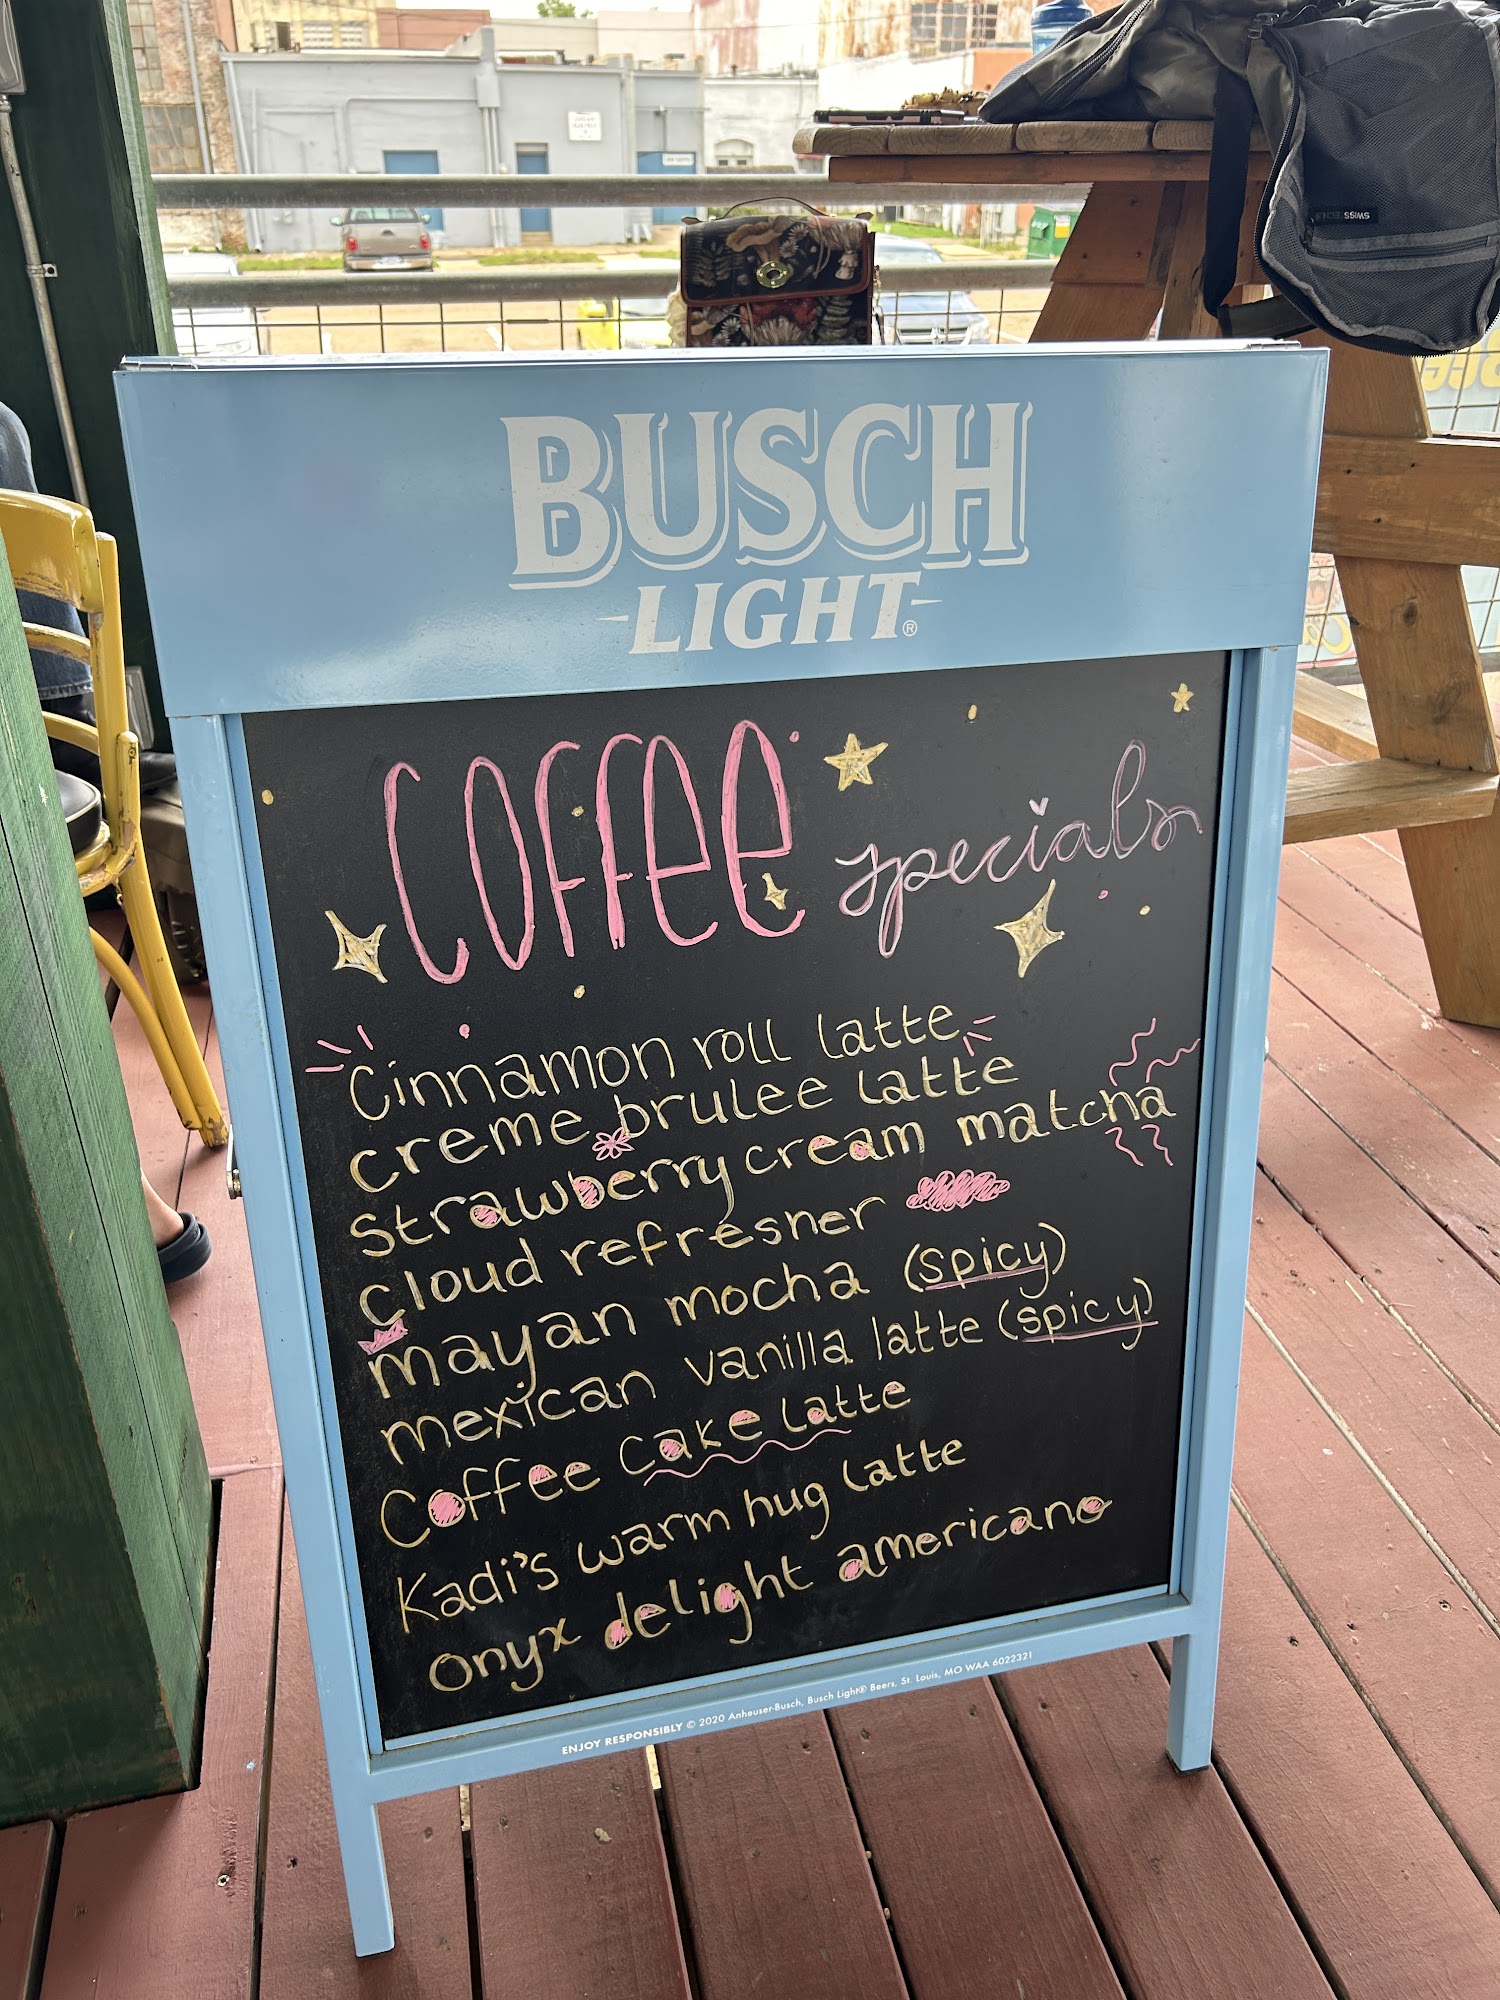 SWISS TECH
BUSCH
LIGHT®
COFFEE specials
Cinnamon roll latte
creme brulee latte
strawberry cream matcha
cloud refresher
mayan mocha (spicy)
mexican vanilla latte (spicy)
Coffee cake latte
Kadi's warm hug latte
onyx delight americano
ENJOY RESPONSIBLY © 2020 Anheuser-Busch, Busch Light® Beers, St. Louis, MO WAA 6022321